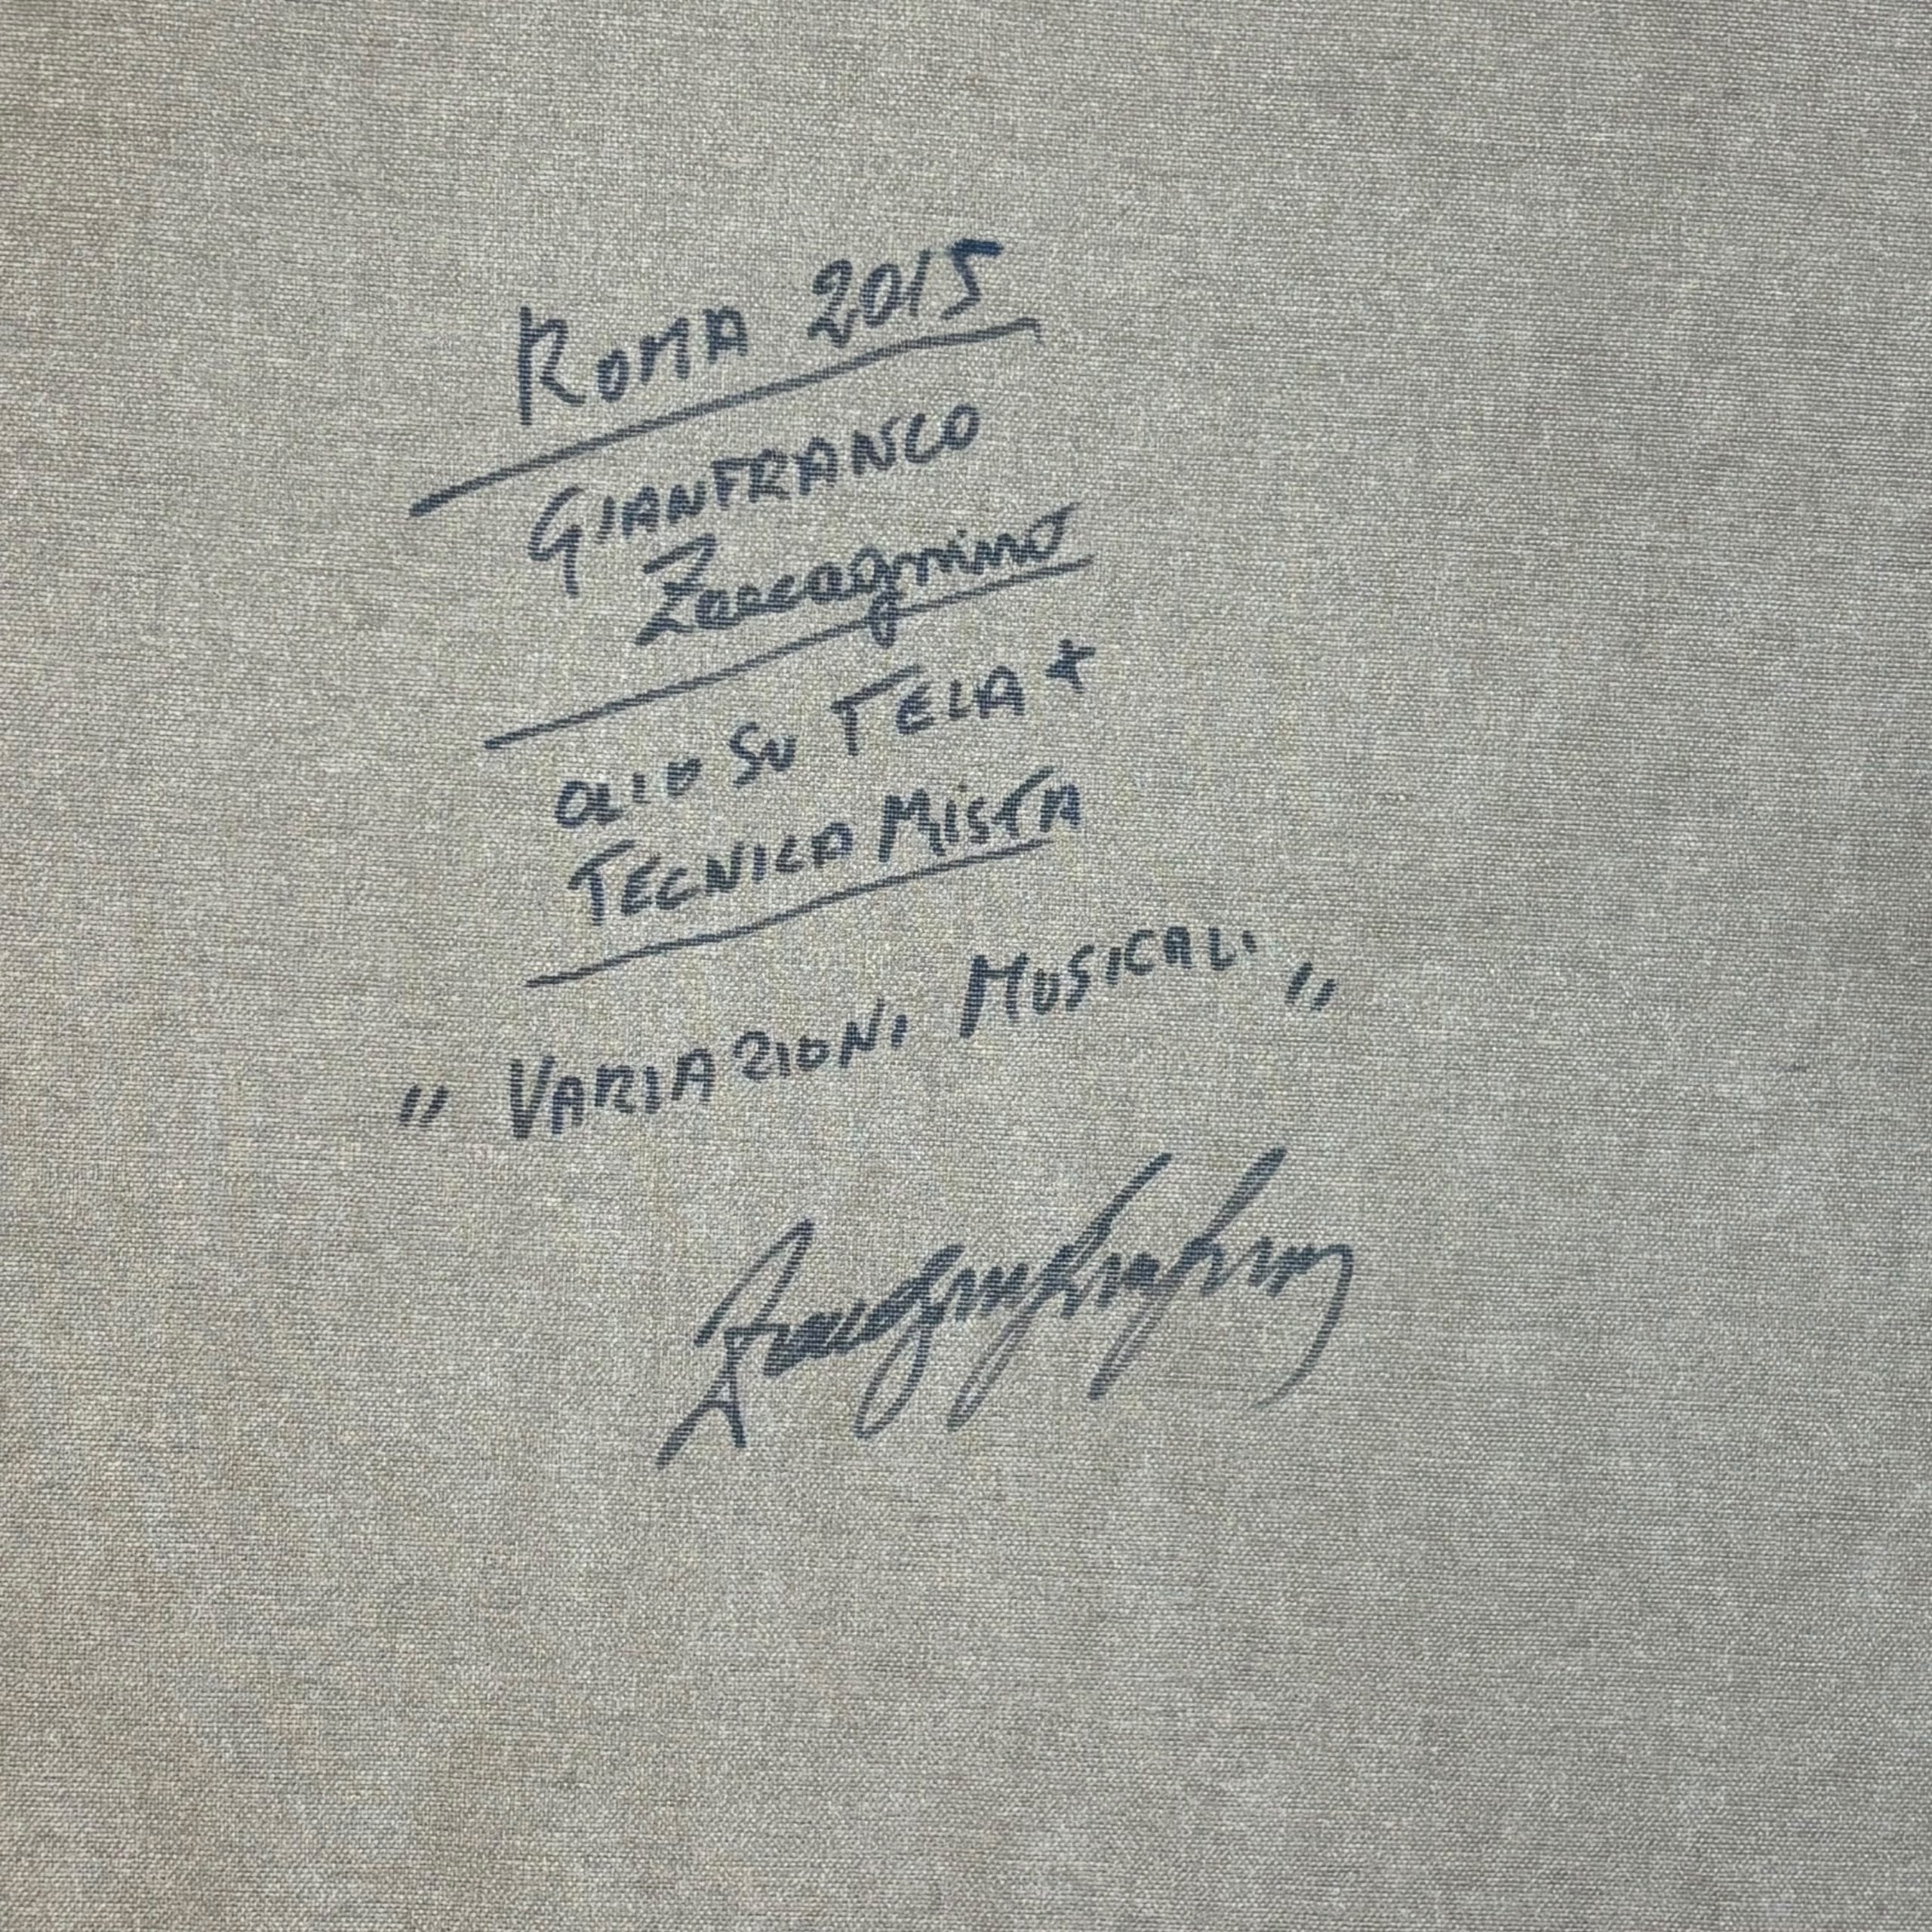 ROMA 2015
GIANFRANCO
Zaccagnino
OLIO SU TELA +
TECNICA MISTA
" VARIAZIONI MUSICALI "